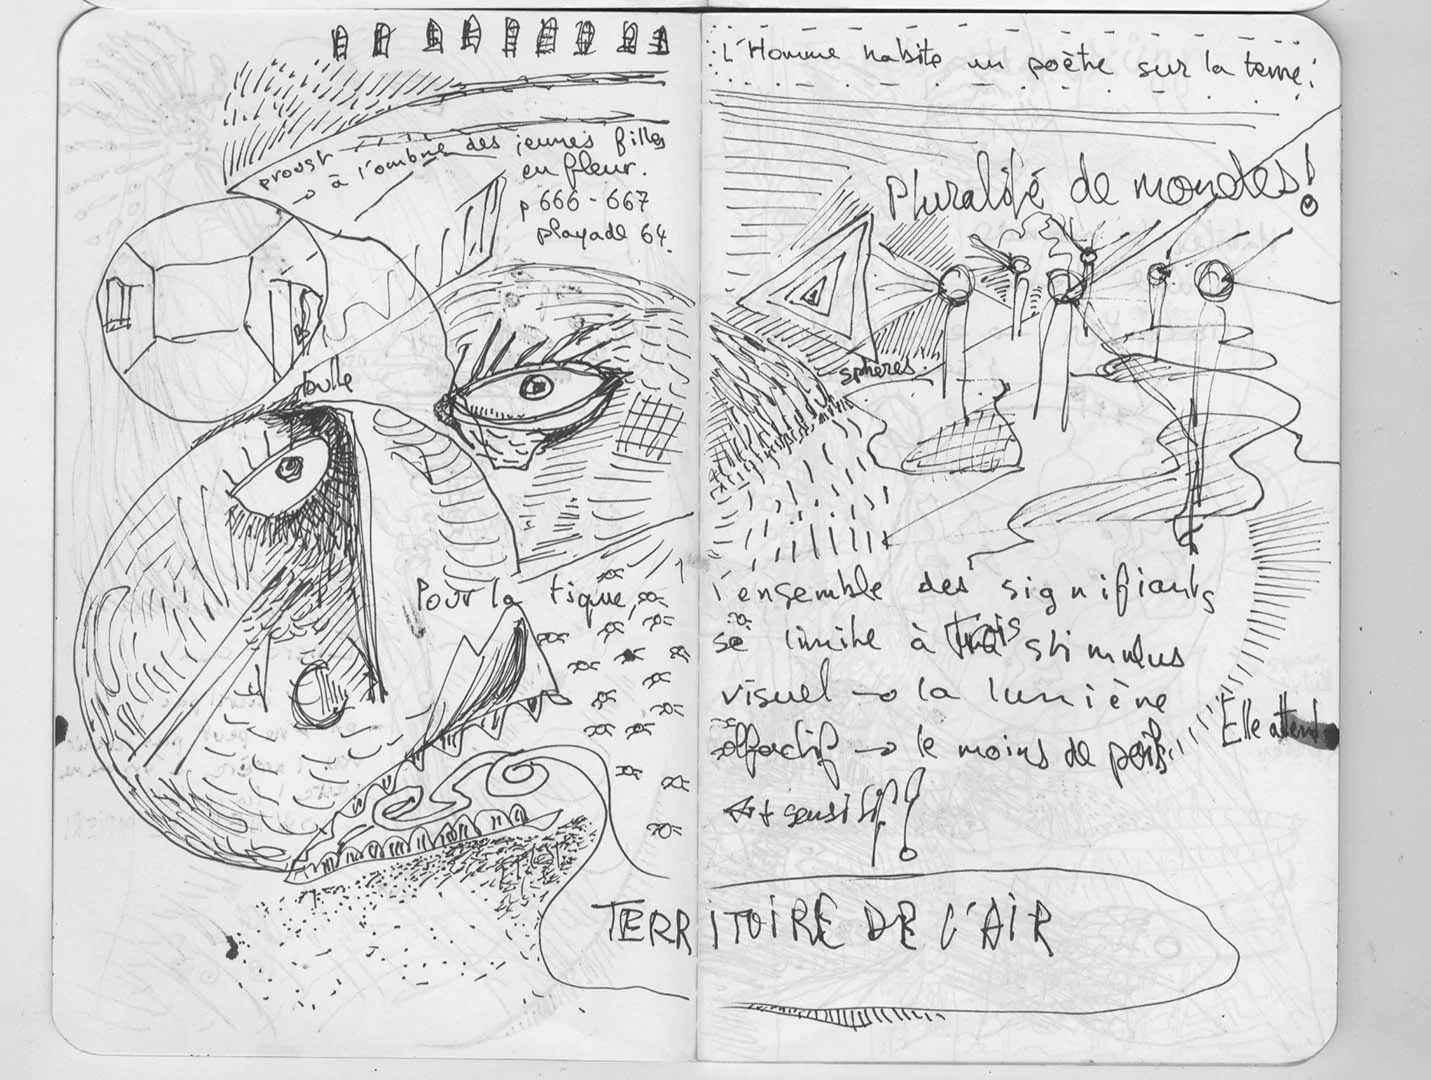 proust
→ à l'ombre des jeunes filles
en fleur.
p 666 - 667
playade 64.
bulle
Pour la tique,
L'Homme habite un poète sur la terre!
Pluralité de mondes!
sphères.
l'ensemble des signifiants
se limite à trois stimulus
visuel → la lumière
olfactif → le moins de poils.
Elle attend
++ sensitif
TERRITOIRE DE L'AIR